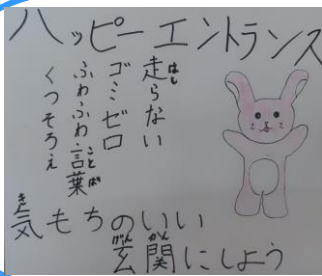 ハッピーエントランス
走らない
はし
ゴミゼロ
ふわふわ言葉
ことば
くつそろえ
気もちのいい
き
玄関にしよう
げんかん